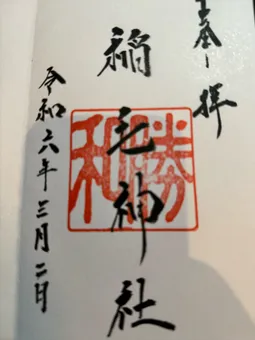 奉拝
稲毛神社
勝和
令和六年三月二日